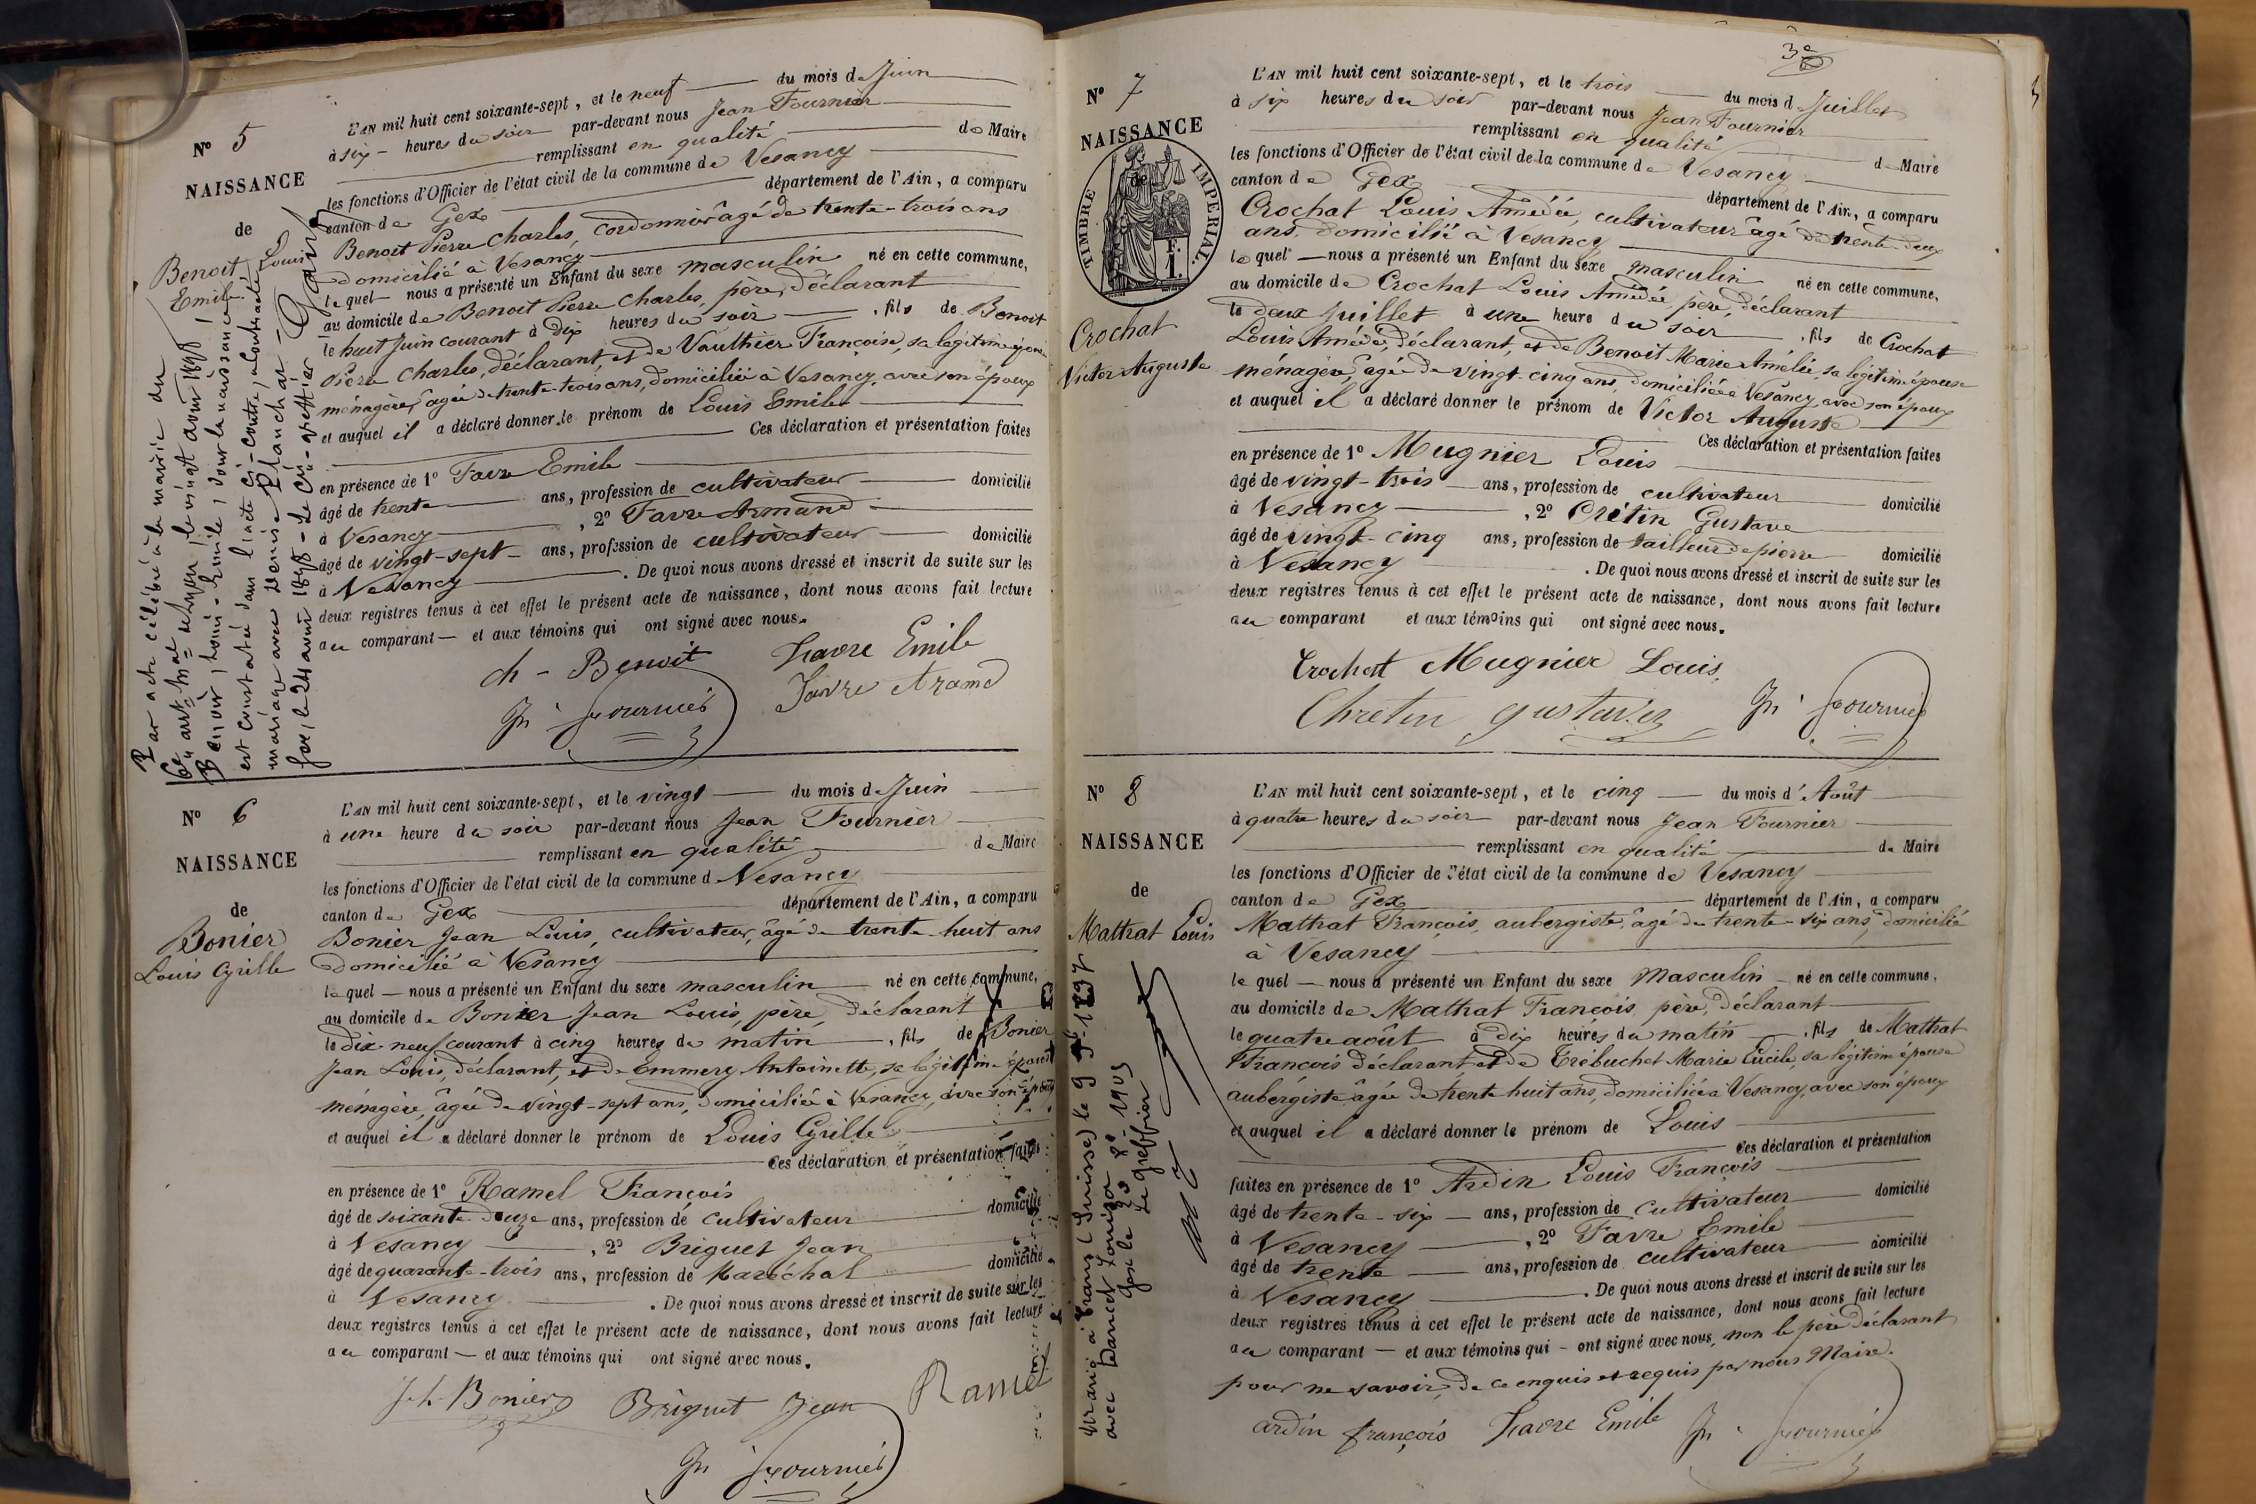 N° 5
NAISSANCE
de
Benoit Louis
Emile
L'AN mil huit cent soixante-sept, et le neuf du mois de Juin
à six heures du soir par-devant nous Jean Fournier
remplissant en qualité de Maire
les fonctions d'Officier de l'état civil de la commune de Vesancy
canton de Gex département de l'Ain, a comparu
Benoit Pierre Charles, cordonnier âgé de trente-trois ans
domicilié à Vesancy
lequel nous a présenté un Enfant du sexe masculin né en cette commune,
au domicile de Benoit Pierre Charles, père, déclarant
le huit Juin courant à dix heures du soir, fils de Benoit
Pierre Charles, déclarant, et de Vaulthier Françoise, sa légitime épouse
ménagère, âgée de trente-trois ans, domiciliée à Vesancy, avec son époux
et auquel il a déclaré donner le prénom de Louis Emile
Ces déclaration et présentation faites
en présence de 1° Favre Emile
âgé de trente ans, profession de cultivateur domicilié
à Vesancy, 2° Favre Armand
âgé de vingt-sept ans, profession de cultivateur domicilié
à Vesancy. De quoi nous avons dressé et inscrit de suite sur les
deux registres tenus à cet effet le présent acte de naissance, dont nous avons fait lecture
au comparant et aux témoins qui ont signé avec nous.
ch - Benoit Favre Emile
Jn Fournier Favre Armand
Par acte célébré à la mairie du
6e arrt de Lyon, le vingt avril 1898,
Benoit, Louis-Emile, dont la naissance
est constatée dans l'acte ci-contre, a contracté
mariage avec Denise Planchat -
Gex, le 24 avril 1898 - Le Cis-greffier
N° 6
NAISSANCE
de
Bonier
Louis Cyrille
L'AN mil huit cent soixante-sept, et le vingt du mois de Juin
à une heure du soir par-devant nous Jean Fournier
remplissant en qualité de Maire
les fonctions d'Officier de l'état civil de la commune d Vesancy
canton de Gex département de l'Ain, a comparu
Bonier Jean Louis, cultivateur, âgé de trente-huit ans
domicilié à Vesancy
lequel nous a présenté un Enfant du sexe masculin né en cette commune,
au domicile de Bonier Jean Louis, père, déclarant
le dix-neuf courant à cinq heures du matin, fils de Bonier
Jean Louis, déclarant, et de Emmery Antoinette, sa légitime épouse
ménagère, âgée de vingt-sept ans, domiciliée à Vesancy, avec son époux
et auquel il a déclaré donner le prénom de Louis Cyrille
Ces déclaration et présentation faites
en présence de 1° Ramel François
âgé de soixante-douze ans, profession de cultivateur domicilié
à Vesancy, 2° Briguet Jean
âgé de quarante-trois ans, profession de Maréchal domicilié
à Vesancy. De quoi nous avons dressé et inscrit de suite sur les
deux registres tenus à cet effet le présent acte de naissance, dont nous avons fait lecture
au comparant et aux témoins qui ont signé avec nous.
J. L. Bonier Briguet Jean Ramel
Jn Fournier
3e
N° 7
NAISSANCE
de
TIMBRE IMPERIAL.
F.
1.
Crochat
Victor Auguste
L'AN mil huit cent soixante-sept, et le trois du mois de Juillet
à six heures du soir par-devant nous Jean Fournier
remplissant en qualité de Maire
les fonctions d'Officier de l'état civil de la commune de Vesancy
canton de Gex département de l'Ain, a comparu
Crochat Louis Amédée, cultivateur âgé de trente-deux
ans, domicilié à Vesancy
lequel nous a présenté un Enfant du sexe masculin né en cette commune,
au domicile de Crochat Louis Amédée, père, déclarant
le deux juillet à une heure du soir, fils de Crochat
Louis Amédée, déclarant, et de Benoit Marie Amélie, sa légitime épouse
ménagère, âgée de vingt-cinq ans, domiciliée à Vesancy, avec son époux
et auquel il a déclaré donner le prénom de Victor Auguste
Ces déclaration et présentation faites
en présence de 1° Mugnier Louis
âgé de vingt-trois ans, profession de cultivateur domicilié
à Vesancy, 2° Crétin Gustave
âgé de vingt-cinq ans, profession de tailleur de pierre domicilié
à Vesancy. De quoi nous avons dressé et inscrit de suite sur les
deux registres tenus à cet effet le présent acte de naissance, dont nous avons fait lecture
au comparant et aux témoins qui ont signé avec nous.
Crochat Mugnier Louis
Chretin gustave Jn Fournier
N° 8
NAISSANCE
de
Mathat Louis
L'AN mil huit cent soixante-sept, et le cinq du mois d'Août
à quatre heures du soir par-devant nous Jean Fournier
remplissant en qualité de Maire
les fonctions d'Officier de l'état civil de la commune de Vesancy
canton de Gex département de l'Ain, a comparu
Mathat François, aubergiste, âgé de trente-six ans, domicilié
à Vesancy
lequel nous a présenté un Enfant du sexe masculin né en cette commune,
au domicile de Mathat François, père, déclarant
le quatre août à dix heures du matin, fils de Mathat
François déclarant, et de Trébuchet Marie Lucile, sa légitime épouse
aubergiste âgée de trente huit ans, domiciliée à Vesancy, avec son époux
et auquel il a déclaré donner le prénom de Louis
Ces déclaration et présentation
faites en présence de 1° Ardin Louis François
âgé de trente-six ans, profession de cultivateur domicilié
à Vesancy, 2° Favre Emile
âgé de trente ans, profession de cultivateur domicilié
à Vesancy. De quoi nous avons dressé et inscrit de suite sur les
deux registres tenus à cet effet le présent acte de naissance, dont nous avons fait lecture
au comparant et aux témoins qui ont signé avec nous, non le père déclarant
pour ne savoir, de ce enquis et requis par nous Maire.
ardin françois Favre Emile Jn Fournier
Marié à (Suisse) le 9
avec Louisa
Gex le
Le greffier